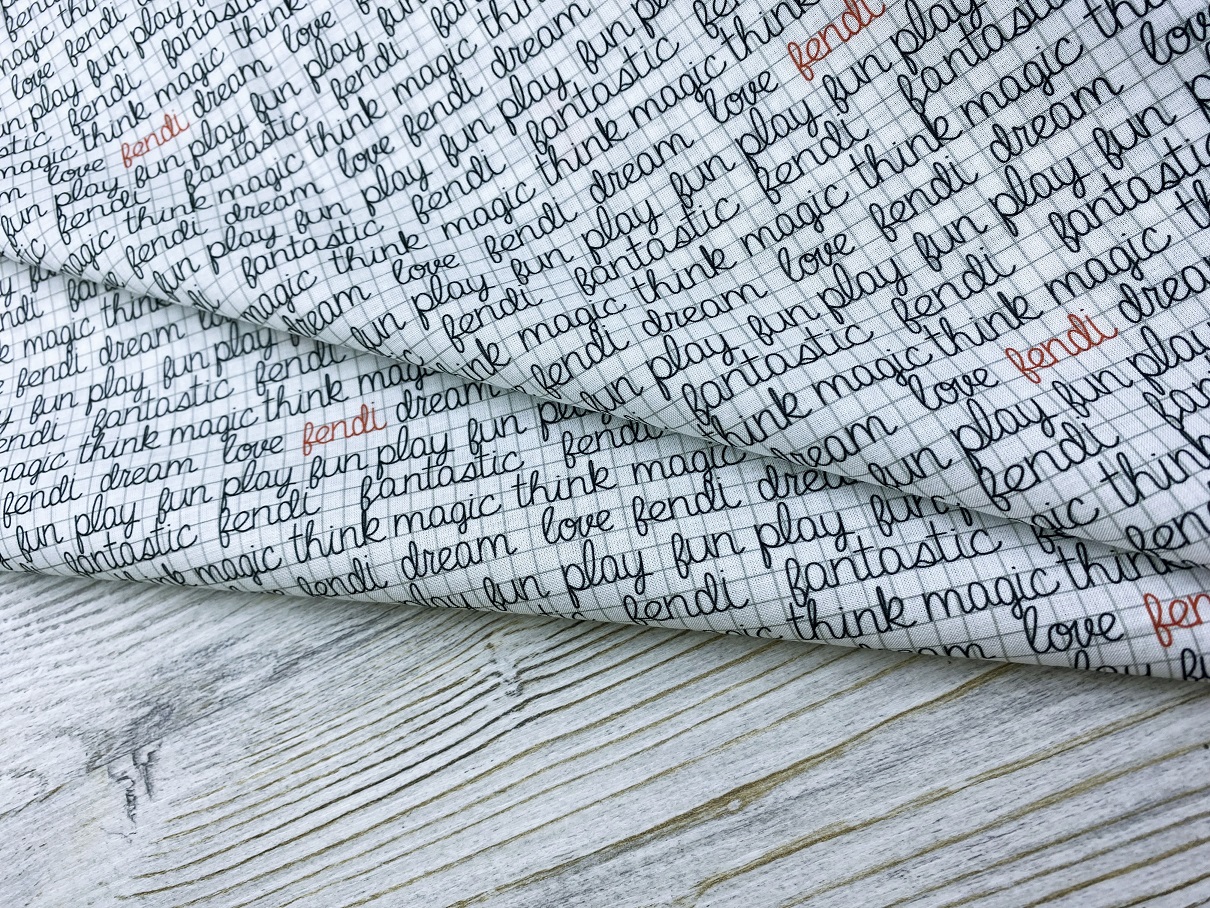 love fendi dream love
play fun play fun play fun
fendi fantastic fendi
magic think magic think magic
fendi dream love fendi dream
fun play fun play fun play fun
fantastic fendi fantastic
magic think magic think magic think
dream love fendi dream love fendi
fun play fun play fun play fun play
fendi fantastic fendi fantastic
magic think magic think magic
fendi dream love fendi dream love
fun play fun play fun play fun
fantastic fendi fantastic
think magic think magic
dream love fendi
fun play fun play
fendi
fendi dream
fun play fun play
fantastic fendi
magic think magic think
fendi dream love fendi dream
fun play fun play fun play fun
fantastic fendi fantastic fendi
magic think magic think magic
fendi dream love fendi
fun play fun play fun
fendi fantastic
think magic think
love